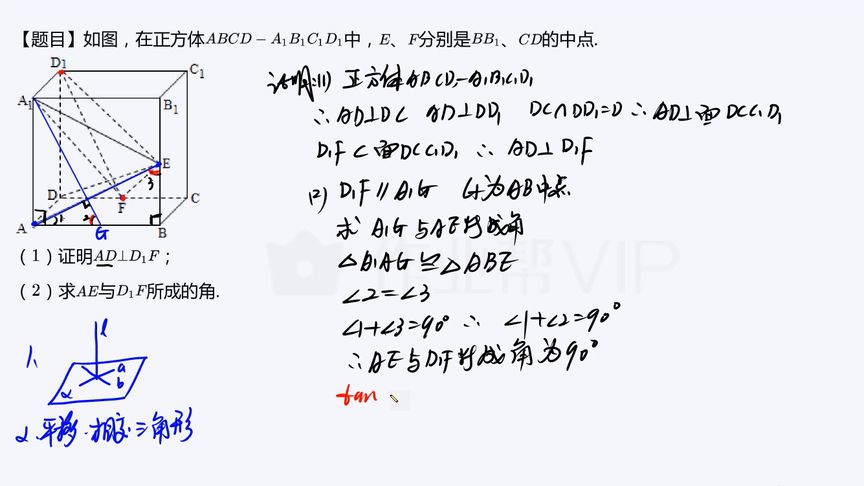 【题目】如图，在正方体ABCD－A₁B₁C₁D₁中，E、F分别是BB₁、CD的中点.
D₁
C₁
A₁
B₁
E
3
D
F
C
A
1
2
G
B
（1）证明AD⊥D₁F；
（2）求AE与D₁F所成的角.
1.
l
a
b
α
2.平移.相交.三角形
证明:(1) 正方体ABCD-A₁B₁C₁D₁
∴AD⊥DC AD⊥DD₁ DC∩DD₁=D ∴AD⊥面DCC₁D₁
D₁F⊂面DCC₁D₁ ∴AD⊥D₁F
(2) D₁F∥A₁G G为AB中点
求A₁G与AE所成角
△A₁AG≌△ABE
∠2=∠3
∠1+∠3=90° ∴ ∠1+∠2=90°
∴AE与D₁F所成角为90°
tan
作业帮VIP